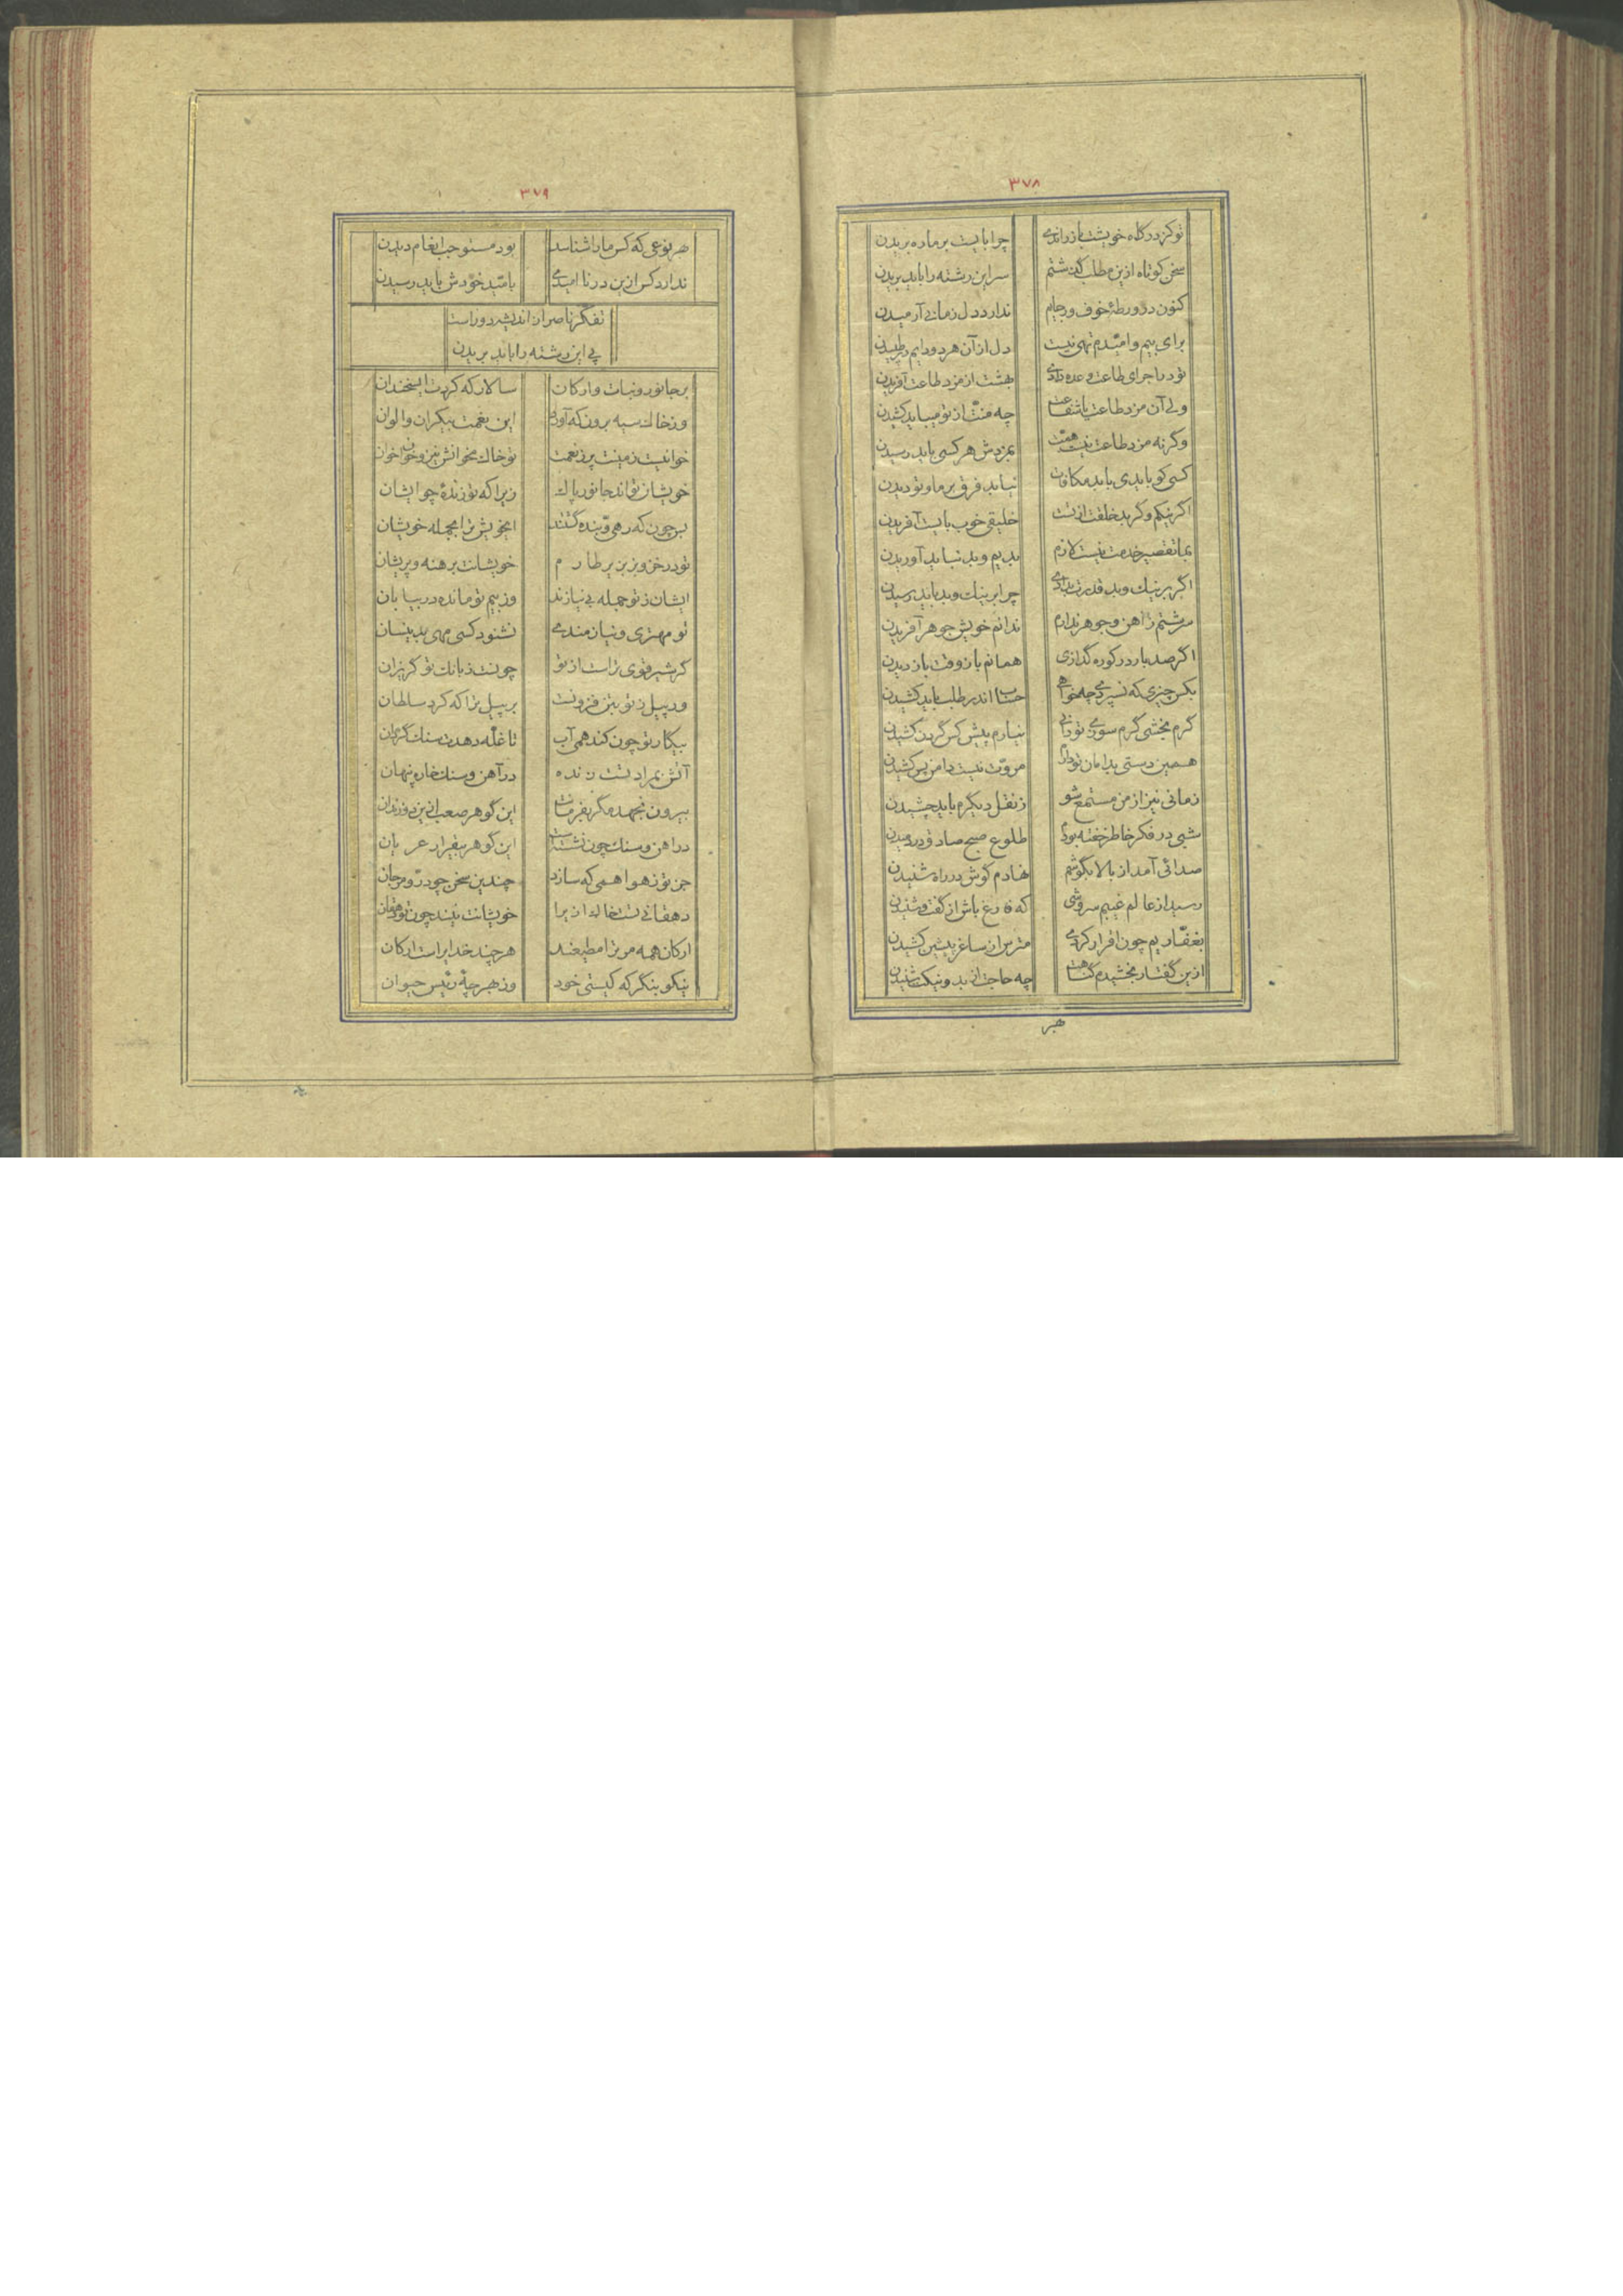 ۳۷۸
تو کز درگاه خویشت باز راندی چرا بایست بر ما ره بریدن
سخن کوتاه ازین مطلب گذشتم سر این رشته را باید بریدن
کنون در ورطهٔ خوف و رجایم ندارد دل زمانی آرمیدن
برای بیم و امیدم تهی نیست دل از آن هر دو دایم در طپیدن
تو در اجرای طاعت وعده دادی بهشت از مزد طاعت آفریدن
ولی آن مزد طاعت با شفاعت چه منت از تو میباید کشیدن
وگرنه مزد طاعت نیست همت بمزدش هر کسی باید رسیدن
کسی کو باید باید مکافات نباید فرق بر ما و تو دیدن
اگر نیکم وگر بد خلقت از تست خلیقی خوب بایست آفریدن
بما تقصیر خدمت نیست لازم بدیم و بد نباید آوریدن
اگر بر نیک و بد قدرت بدادی چرا بر نیک و بد باید رسیدن
سرشتم ز آهن و جوهر ندارم ندانم خویش جوهر آفریدن
اگر صد بار در کوره گدازی همانم باز وقت باز دیدن
بکس چیزی که نسپردی چه خواهی حساب اندر طلب باید کشیدن
کرم بخشی گرم سوزی تو دانی نیارم پیش کس گردن کشیدن
همین دستی بدامان تو دارم مروت نیست دامن پس کشیدن
زمانی نیز از من مستمع شو ز نقل دیگرم باید چشیدن
شبی در فکر خاطر خفته بودم طلوع صبح صادق در دمیدن
صدائی آمد از بالا بگوشم نهادم گوش در راه شنیدن
رسید از عالم غیبم سروشی که فارغ باش از گفت و شنیدن
بغفاریم چون اقرار کردی مترس از ساغر پیشین کشیدن
ازین گفتار بخشیدم گناهت چه حاجت از بد و نیکت شنیدن
هر
۳۷۹
هر نوعی که کس ما را شناسد بود مستوجب انعام دیدن
ندارد کس ازین در ناامیدی بامید خودش باید رسیدن
تفکر ناصر از اندیشه دور است
پی این رشته را باید بریدن
بر جانور و نبات و ارکان سالار که کردت ای سخندان
وز خاک سیه برون که آورد این نعمت بیکران و الوان
خوانیست زمینت پر ز نعمت تو خاک بخوانش نیز و خوان خوان
خویشان تواند جانور پاک زیرا که تو زندهٔ چو ایشان
بس چون که رهی و بنده گشتند ای خویش ترا بجمله خویشان
تو در خز و بز بزیر طارم خویشانت برهنه و پریشان
ایشان ز تو جمله بی نیازند وز بیم تو مانده در بیابان
تو مهتری و نیازمندی نشنود کسی مهی بدینسان
گر شیر قوی‌تر است از تو چونست ز بانک تو گریزان
ور پیل ز تو بتن فزونست بر پیل ترا که کرد سلطان
بیکار تو چون کند همی آب تا غله دهدت سنک گردان
آتش بمراد تست زنده در آهن و سنک خاره پنهان
بیرون نجهد مگر بفرمانت این گوهر صعب
در آهن و سنک چون نشسته است این گوهر بیقرار عریان
جز تو ز هوا همی که سازد چندین سخن چو در و مرجان
دهقانی تست خاک ازیرا خویشانت نیند چون تو دهقان
ارکان همه مر ترا مطیعند هر چند خدایراست ارکان
نیکو بنگر که کیستی خود وز بهر چهٔ رئیس حیوان